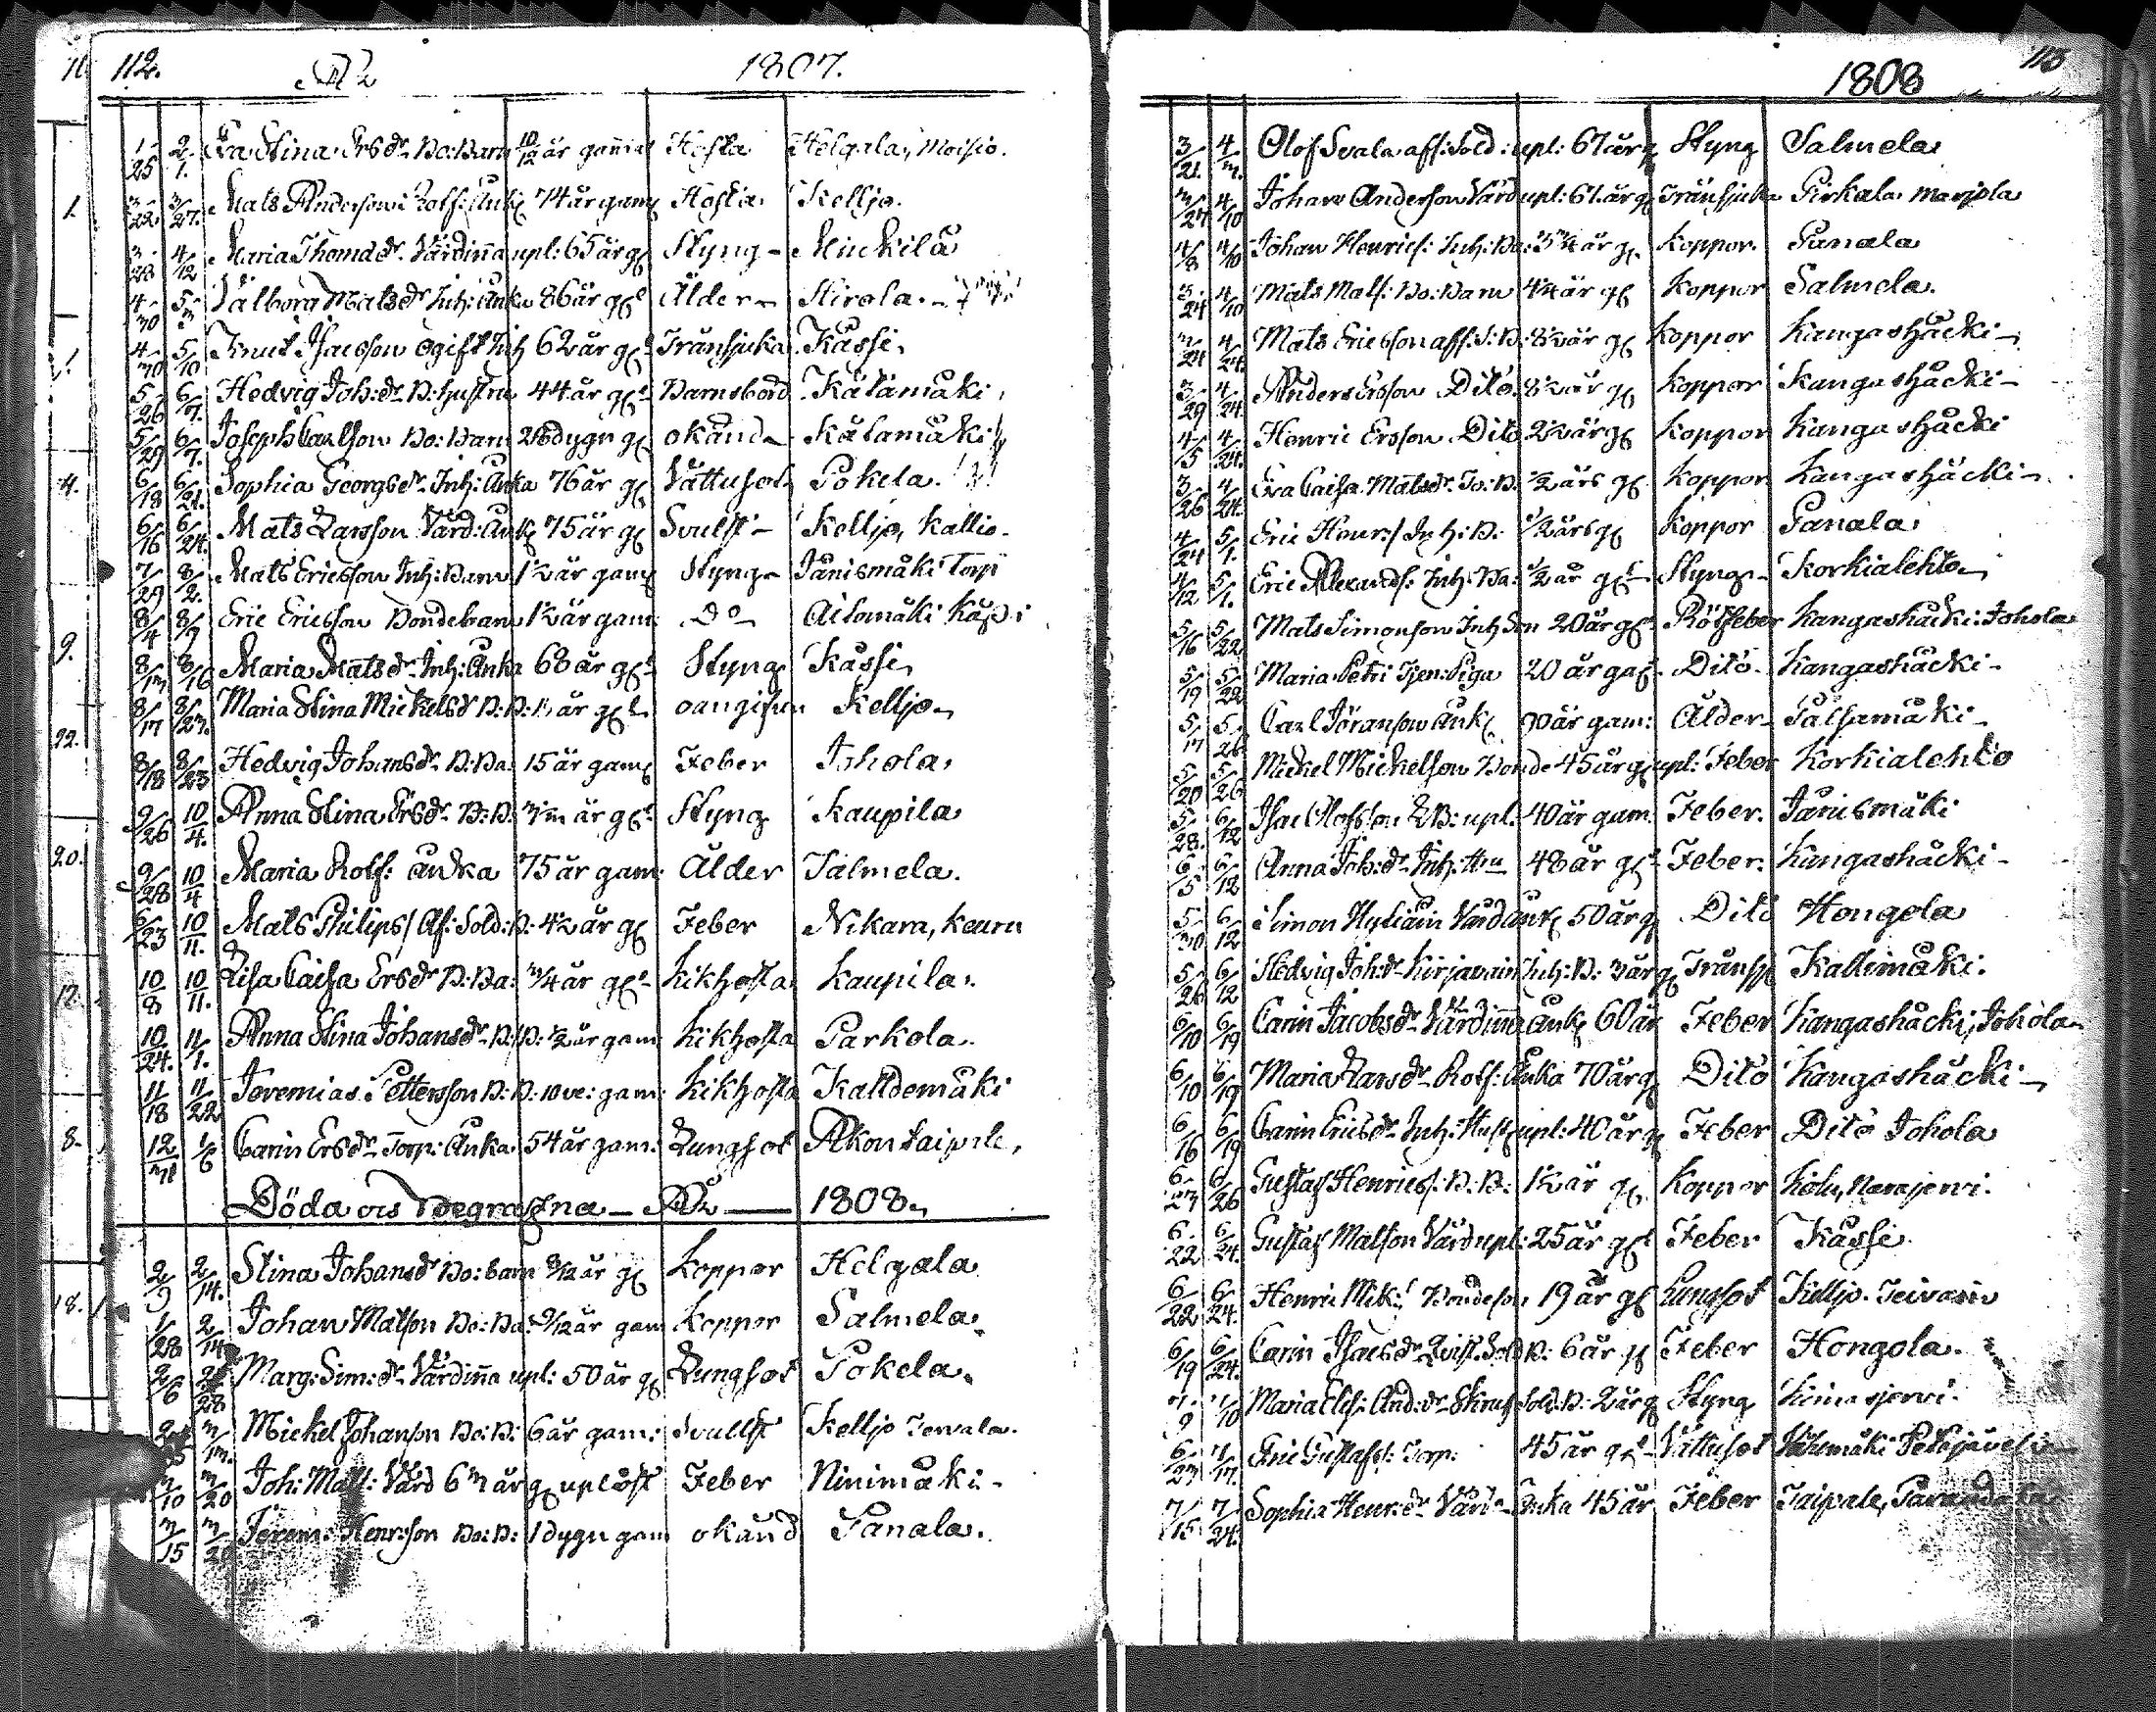 112. Åhr 1807.
1/25 2/1. Eva Stina Ersdr Bo: Barn 10/12 år gammal Hosta Helgala, Moisio.
3/22 3/27. Mats Anderson Rotf: Enk 74 år gam Hosta Keljo.
3/28 4/12 Maria Thomädr Värdinna upl: 65 år g Styng Muckila
4/30 5/3 Valborg Matsdr Inh: Enka 86 år gl Ålder Hirola.
4/30 5/10 Knut Isacsson ogift Inh 62 år gl Trånsjuka Kässi
5/26 6/7. Hedvig Joh:dr B: hustru 44 år gl Barnsbörd Kälämäki
5/29 6/7. Joseph Carlson Bo: Barn dygn g okänd Kälamäki
6/18 6/21. Sophia Georgsdr Inh: Enka 76 år g Vattusot Pokela.
6/16 6/24. Mats Larsson Värd: Enk 75 år g Svulst Keljo, Kallio.
7/29 8/2. Mats Ericsson Inh: Barn 1½ år gam Styng Jänismäki Torp
8/4 8/9 Eric Ericsson Bondebarn 1½ år gam Do Ailomäki
8/13 8/16 Maria Matsdr Inh: Enka 68 år gl Styng Kässi
8/17 8/23. Maria Stina Mickelsdr B: B: år gl oangifven Keljo
8/18 8/23 Hedvig Johansdr B: Ba: 15 år gam Feber Johola
9/26 10/4. Anna Stina Ersdr B: B: år gl Styng Kaupila
9/28 10/4 Maria Rotf: Enka 75 år gam Ålder Salmela.
6/23 10/11. Mats Philips/ Af: Sold: B: 4½ år g Feber Nikara, Keuru
10/8 10/11. Lisa Caisa Ersdr B: Ba: ¾ år gl Kikhosta Kaupila.
10/24. 11/1. Anna Stina Johansdr B: B: ½ år gam Kikhosta Parkola.
11/18 11/22 Jeremias Pettersson B: B: 10 ve: gam Kikhosta Kalldemäki
12/31 1/6 Carin Ersdr Torp: Enka 54 år gam: Lungsot Akontaipale,
Döda och Begrafna Åhr 1808.
2/9 2/14. Stina Johansdr Bo: barn 9/12 år g Koppor Helgala
1/28 2/14 Johan Matson Bo: Ba: 9/12 år gam Koppor Salmela.
2/6 2/28 Marg: Sim:dr Värdinna upl: 50 år g Lungsot Pokela.
Mickel Johanson Bo: B: 6 år gam: Svullst Keljo Jervala.
3/10 3/20 Joh: Mats: Värd 63 år g uplöst Feber Ninimäki
3/15 3/20 Jerem: Henr:son Bo: B: 1 dygn gam okänd Panala.
113
1808
3/21. 4/3. Olof Svala aff: Sold: upl: 67 år g Styng Salmela
3/24 4/10 Johan Anderson Värd upl: 61. år g Trånsjuka Pirkala Marjola
4/8 4/10 Johan Henrics: Inh: Ba: 5¼ år g Koppor. Panala
3/24 4/10 Mats Mats: Bo: Barn 4¼ år g Koppor Salmela.
3/24 4/24. Mats Ericsson aff: S: B: 8½ år g Koppor Kangashäcki
3/29 4/24. Anders Ersson Dito. 8½ år g Koppor Kangashäcki
4/5 4/24. Henric Ersson Dito 2½ år g Koppor Kangashäcki
3/26 4/24. Eva Caisa Matsdr To: B. ½ års g Koppor Kangashäcki
4/24 5/1. Eric Henr:/ Inh: B: ½ års g Koppor Panala
4/12 5/1. Eric Alexands: Inh: Ba: ½ år gl Styng Korkialehto
5/16 5/22 Mats Simonson Inh Son 20 år gl Rötfeber Kangashäcki: Johola
5/19 5/22 Maria Petri Tjen: Piga 20 år gal Dito Kangashäcki
5/17 5/26 Carl Jöranson Enk 90 år gam: Ålder Palsamäki
5/20 5/26 Mickel Mickelson Bonde 45 år g upl: Feber Korkialehto
5/28. 6/12 Isac Olofsson B: upl. 40 år gam Feber. Jänismäki
6/5 6/12 Anna Joh:dr Inh: Hu 48 år gl Feber. Kangashäcki
5/30 6/12 Simon Hytiäin Värd Enk 50 år g Dito Hongola
5/26 6/12 Hedvig Joh:dr Kirjavain Inh: B: 3 år g Trånsj Kallimäki.
6/10 6/19 Carin Jacobsdr Värdinna Enk 60 år Feber Kangashäcki, Johola
6/10 6/19 Maria Larsdr Rotf: Enka 70 år g Dito Kangashäcki
6/16 6/19 Carin Ericsdr Inh: Hust upl: 40 år g Feber Dito Johola
6/23 6/26 Gustaf Henrics: B: B: 1½ år g Koppor Kolu, Narajervi.
6/22 6/24. Gustaf Matson Värd upl: 25 år gl Feber Kässi.
6/22 6/24. Henric Mik: Bondeson 19 år gl Lungsot Keljo. Teivain
6/19 6/24. Carin Isacsdr Qvist Sold B: 6 år g Feber Hongola.
7/9 7/10 Maria Elis: And:dr Skruf Sold: B: 2 år g Styng Kimasjervi.
6/23 7/17. Eric Gustafs: Torp: 45 år gl Vattusot Petäjävesi
7/15 7/24. Sophia Henr:dr Värd: Enka 45 år Feber Taipale,